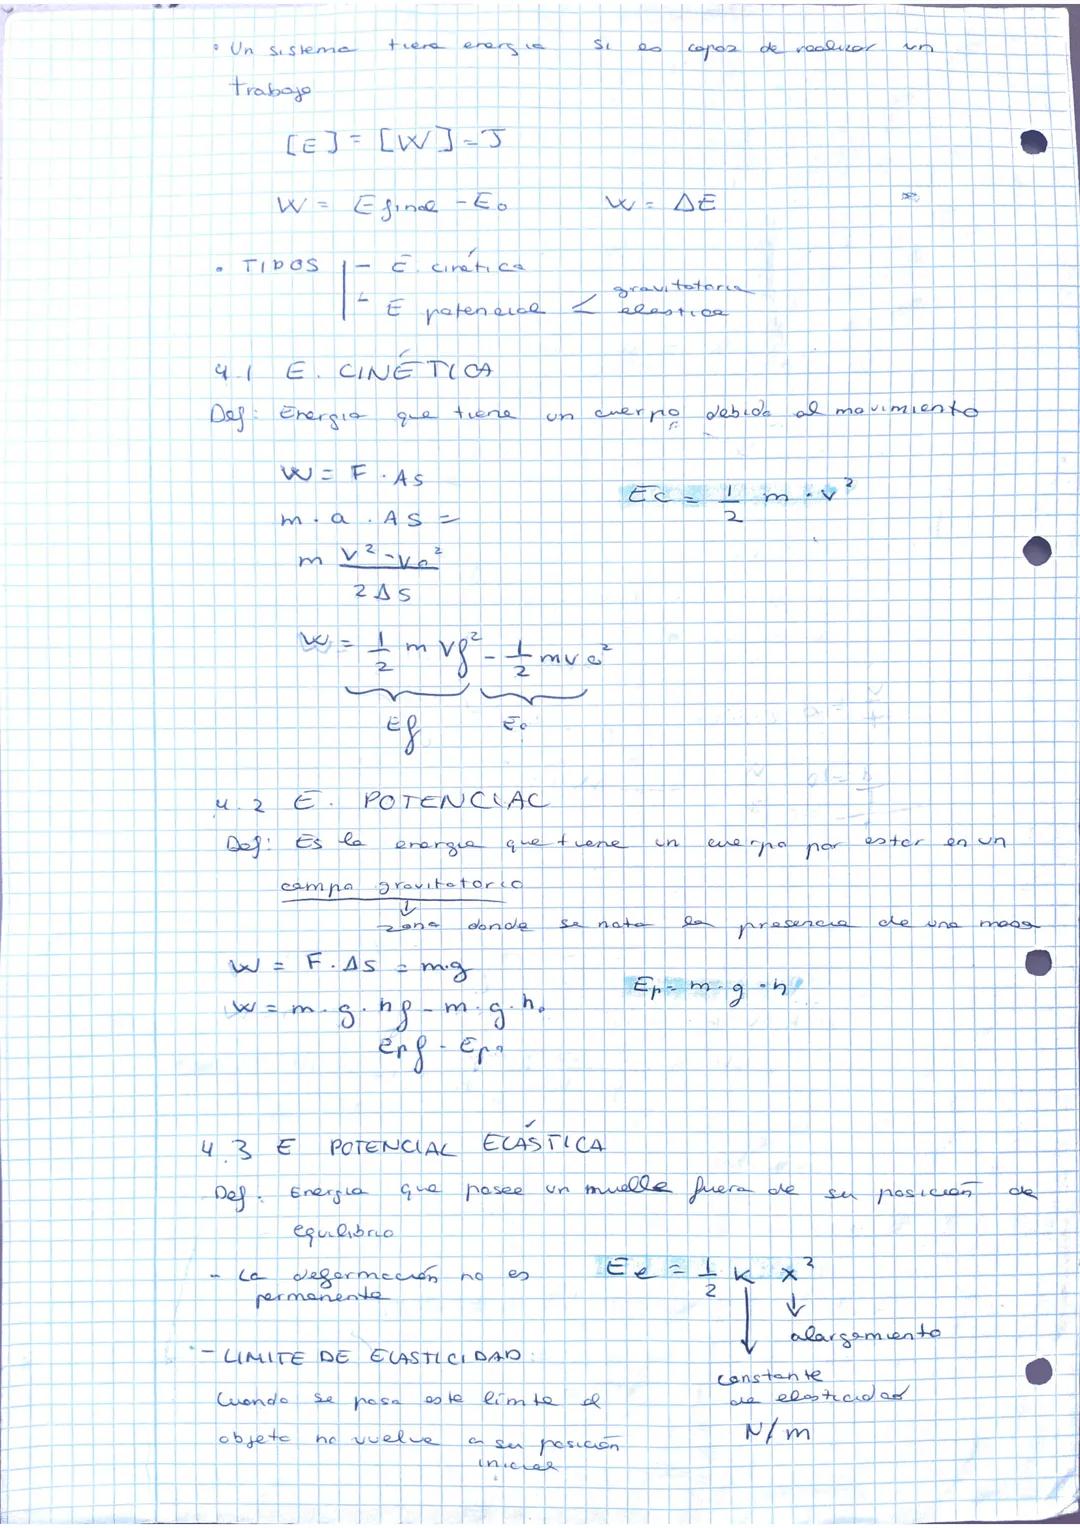 • Un sistema tiene energia si es capaz de realizar un
trabajo
[E] = [W] = J
W = E final - E₀   W = ΔE
• TIPOS - E. cinética
- E potencial < gravitatoria
elastica
4.1 E. CINÉTICA
Def: Energia que tiene un cuerpo debido al movimiento
W = F · Δs
Ec = 1/2 m · v²
m · a · Δs =
m (v² - v₀²) / 2Δs
W = 1/2 m vf² - 1/2 m v₀²
Ef   E₀
4.2 E. POTENCIAL
Def: Es la energia que tiene un cuerpo por estar en un
campo gravitatorio
↓
zona donde se nota la presencia de una masa
W = F · Δs = m·g
Ep = m · g · h
W = m · g · hf - m · g · h₀
Epf - Ep₀
4.3 E POTENCIAL ELÁSTICA
Def. Energia que posee un muelle fuera de su posición de
equilibrio
- La deformación no es
permanente
Ee = 1/2 K x²
alargamiento
- LIMITE DE ELASTICIDAD:
constante
de elasticidad
Cuando se pasa este límite el
N/m
objeto no vuelve a su posición
inicial